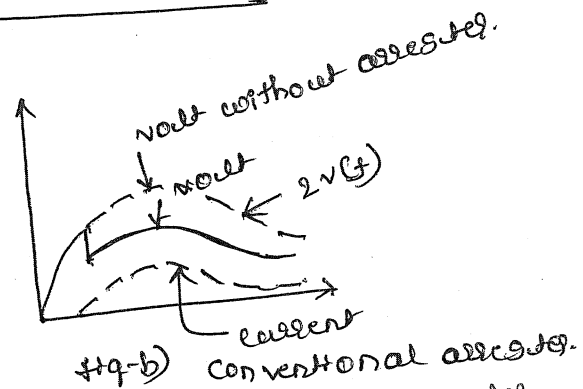 volt without arrester.
volt
2v(t)
current
fig-b) conventional arrester.